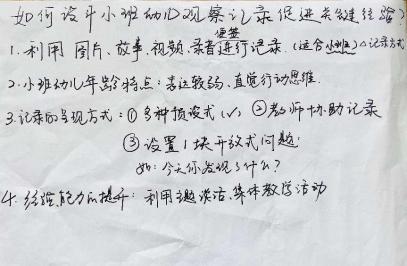 如何设计小班幼儿观察记录促进关键经验?
1. 利用 图片、故事、视频、录音进行记录.(适合小班)△记录方式
便签
2. 小班幼儿年龄特点：表达较弱、直觉行动思维.
3. 记录的呈现方式：① 多种预设式(√) ② 老师协助记录
③ 设置1块开放式问题.
如: 今天你发现了什么?
4. 经验能力的提升：利用主题谈话、集体教学活动